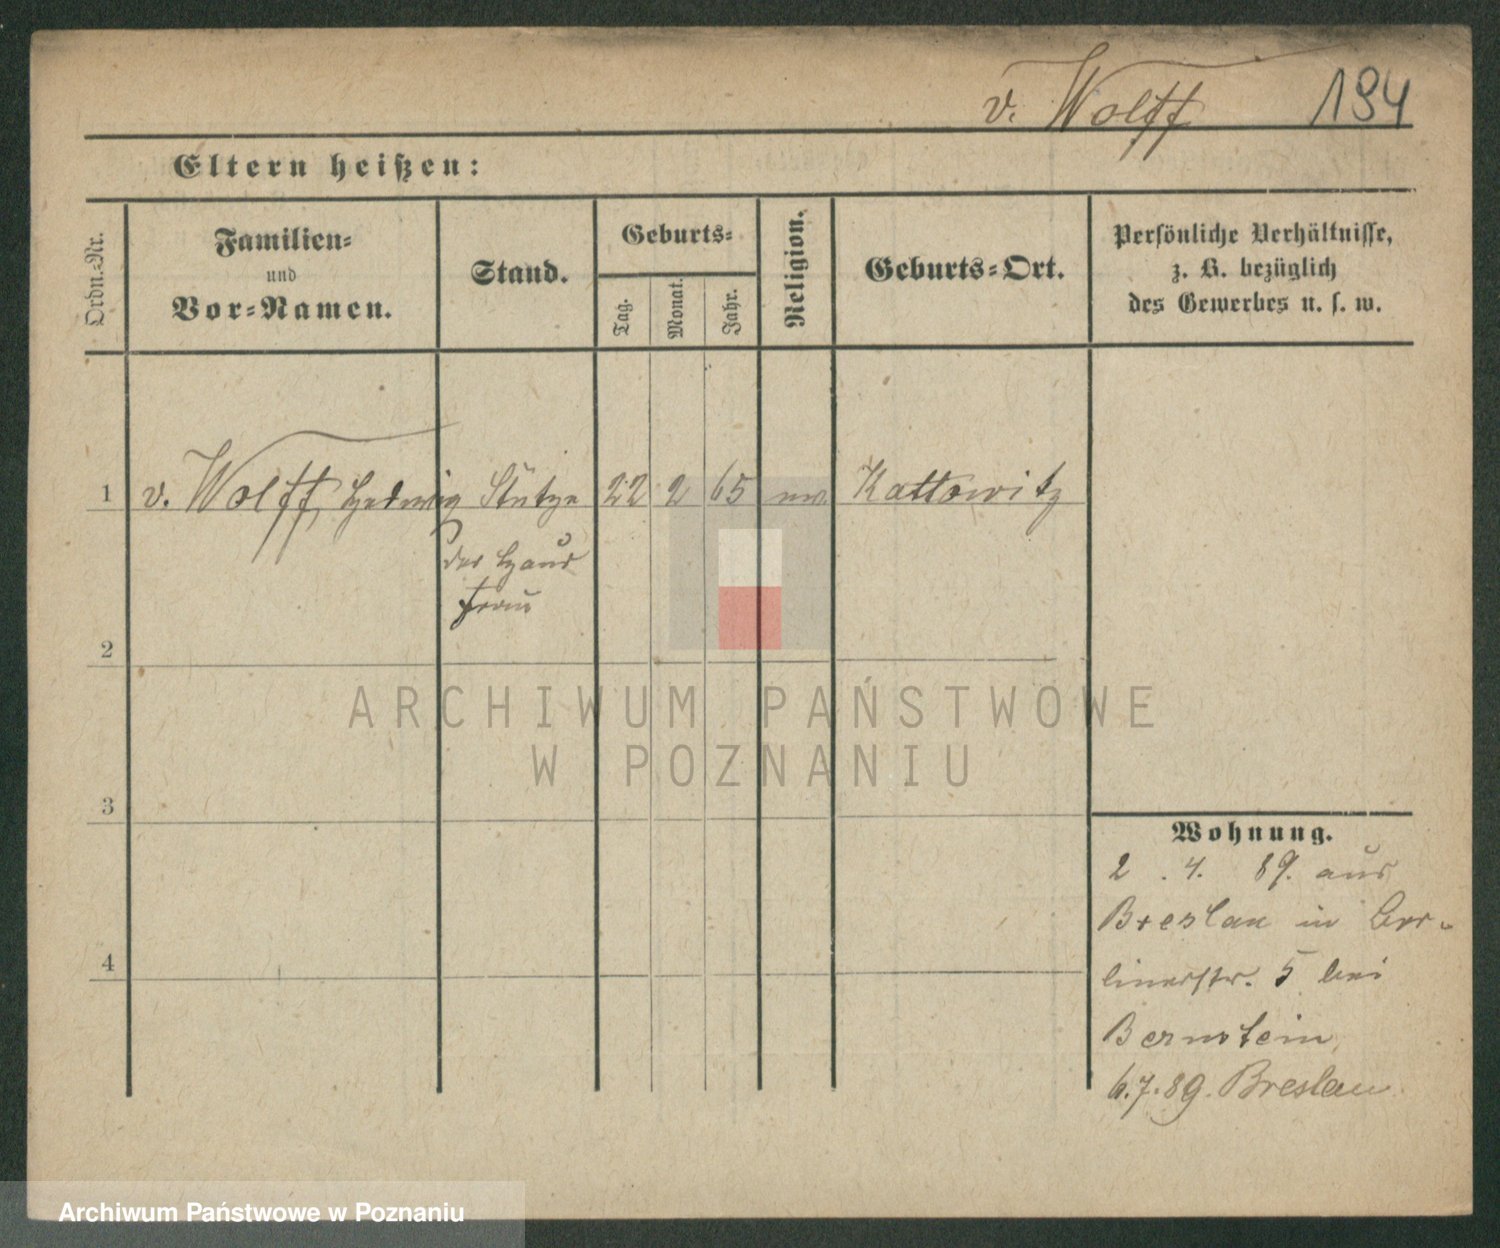 v. Wolff 194
Eltern heißen:
Ordn.-Nr.
Familien-
und
Vor-Namen.
Stand.
Geburts-
Tag.
Monat.
Jahr.
Religion.
Geburts-Ort.
Persönliche Verhältnisse,
z. B. bezüglich
des Gewerbes u. s. w.
1 v. Wolff, Hedwig Stütze 22 2 65 Kattowitz
der Haus
frau
2
3
4
Wohnung.
2. 4. 89. aus
Breslau in Ber-
linerstr. 5 bei
Bernstein
6.7.89. Breslau
ARCHIWUM PAŃSTWOWE
W POZNANIU
Archiwum Państwowe w Poznaniu